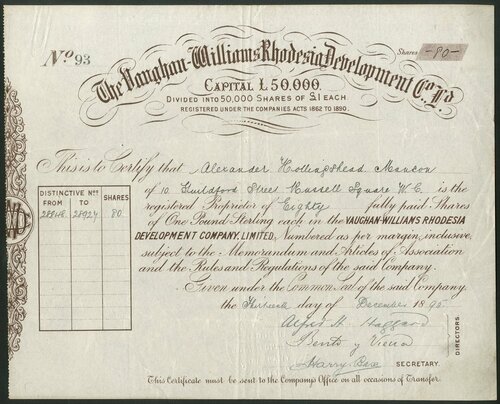 Nº 93
Shares -80-
The Vaughan-Williams Rhodesia Development Co. Ld.
CAPITAL £50,000.
DIVIDED INTO 50,000 SHARES OF £1 EACH.
REGISTERED UNDER THE COMPANIES ACTS 1862 TO 1890.
This is to Certify that Alexander Hollingshead
of 10 Guildford Street Russell Square W.C. is the
registered Proprietor of Eighty fully paid Shares
of One Pound Sterling each in the VAUGHAN-WILLIAMS RHODESIA
DEVELOPMENT COMPANY, LIMITED, Numbered as per margin, inclusive,
subject to the Memorandum and Articles of Association
and the Rules and Regulations of the said Company.
Given under the Common Seal of the said Company,
the Thirteenth day of December 1895
DISTINCTIVE Nos. SHARES
FROM TO
28924 80
Alfred H. Haggard
DIRECTORS
Harry SECRETARY.
This Certificate must be sent to the Company's Office on all occasions of Transfer.